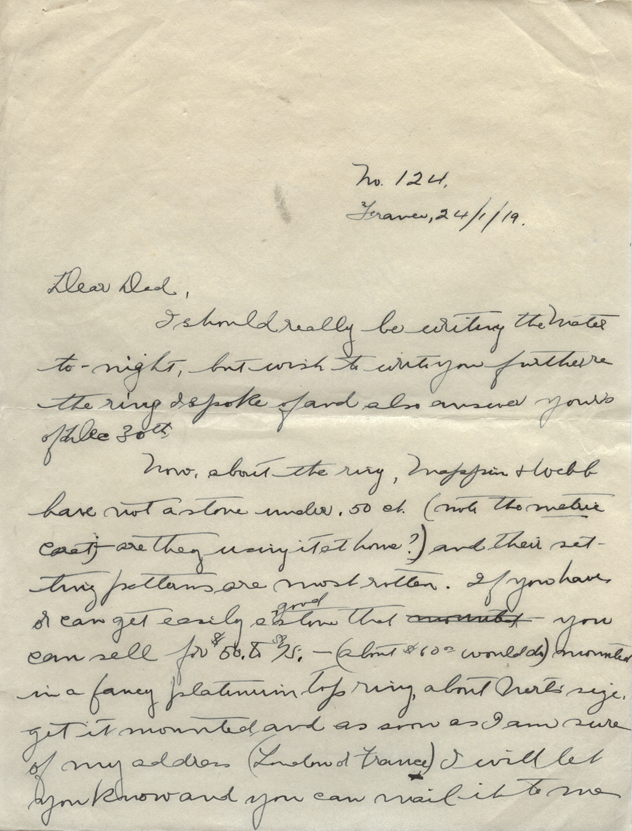 No. 124.
France, 24/1/19.
Dear Dad,
I should really be writing the Mater
to-night, but wish to write you further re
the ring I spoke of and also answer yours
of Dec 30th.
Now, about the ring, Mappin & Webb
have not a stone under .50 ct. (note the metric
carat, are they using it at home?) and their set-
ting patterns are most rotten. If you have
or can get easily a good stone that you
can sell for $50. to $75. - (about $60 00 would do) mounted
in a fancy platinum top ring, about size,
get it mounted and as soon as I am sure
of my address (London or France) I will let
you know and you can mail it to me